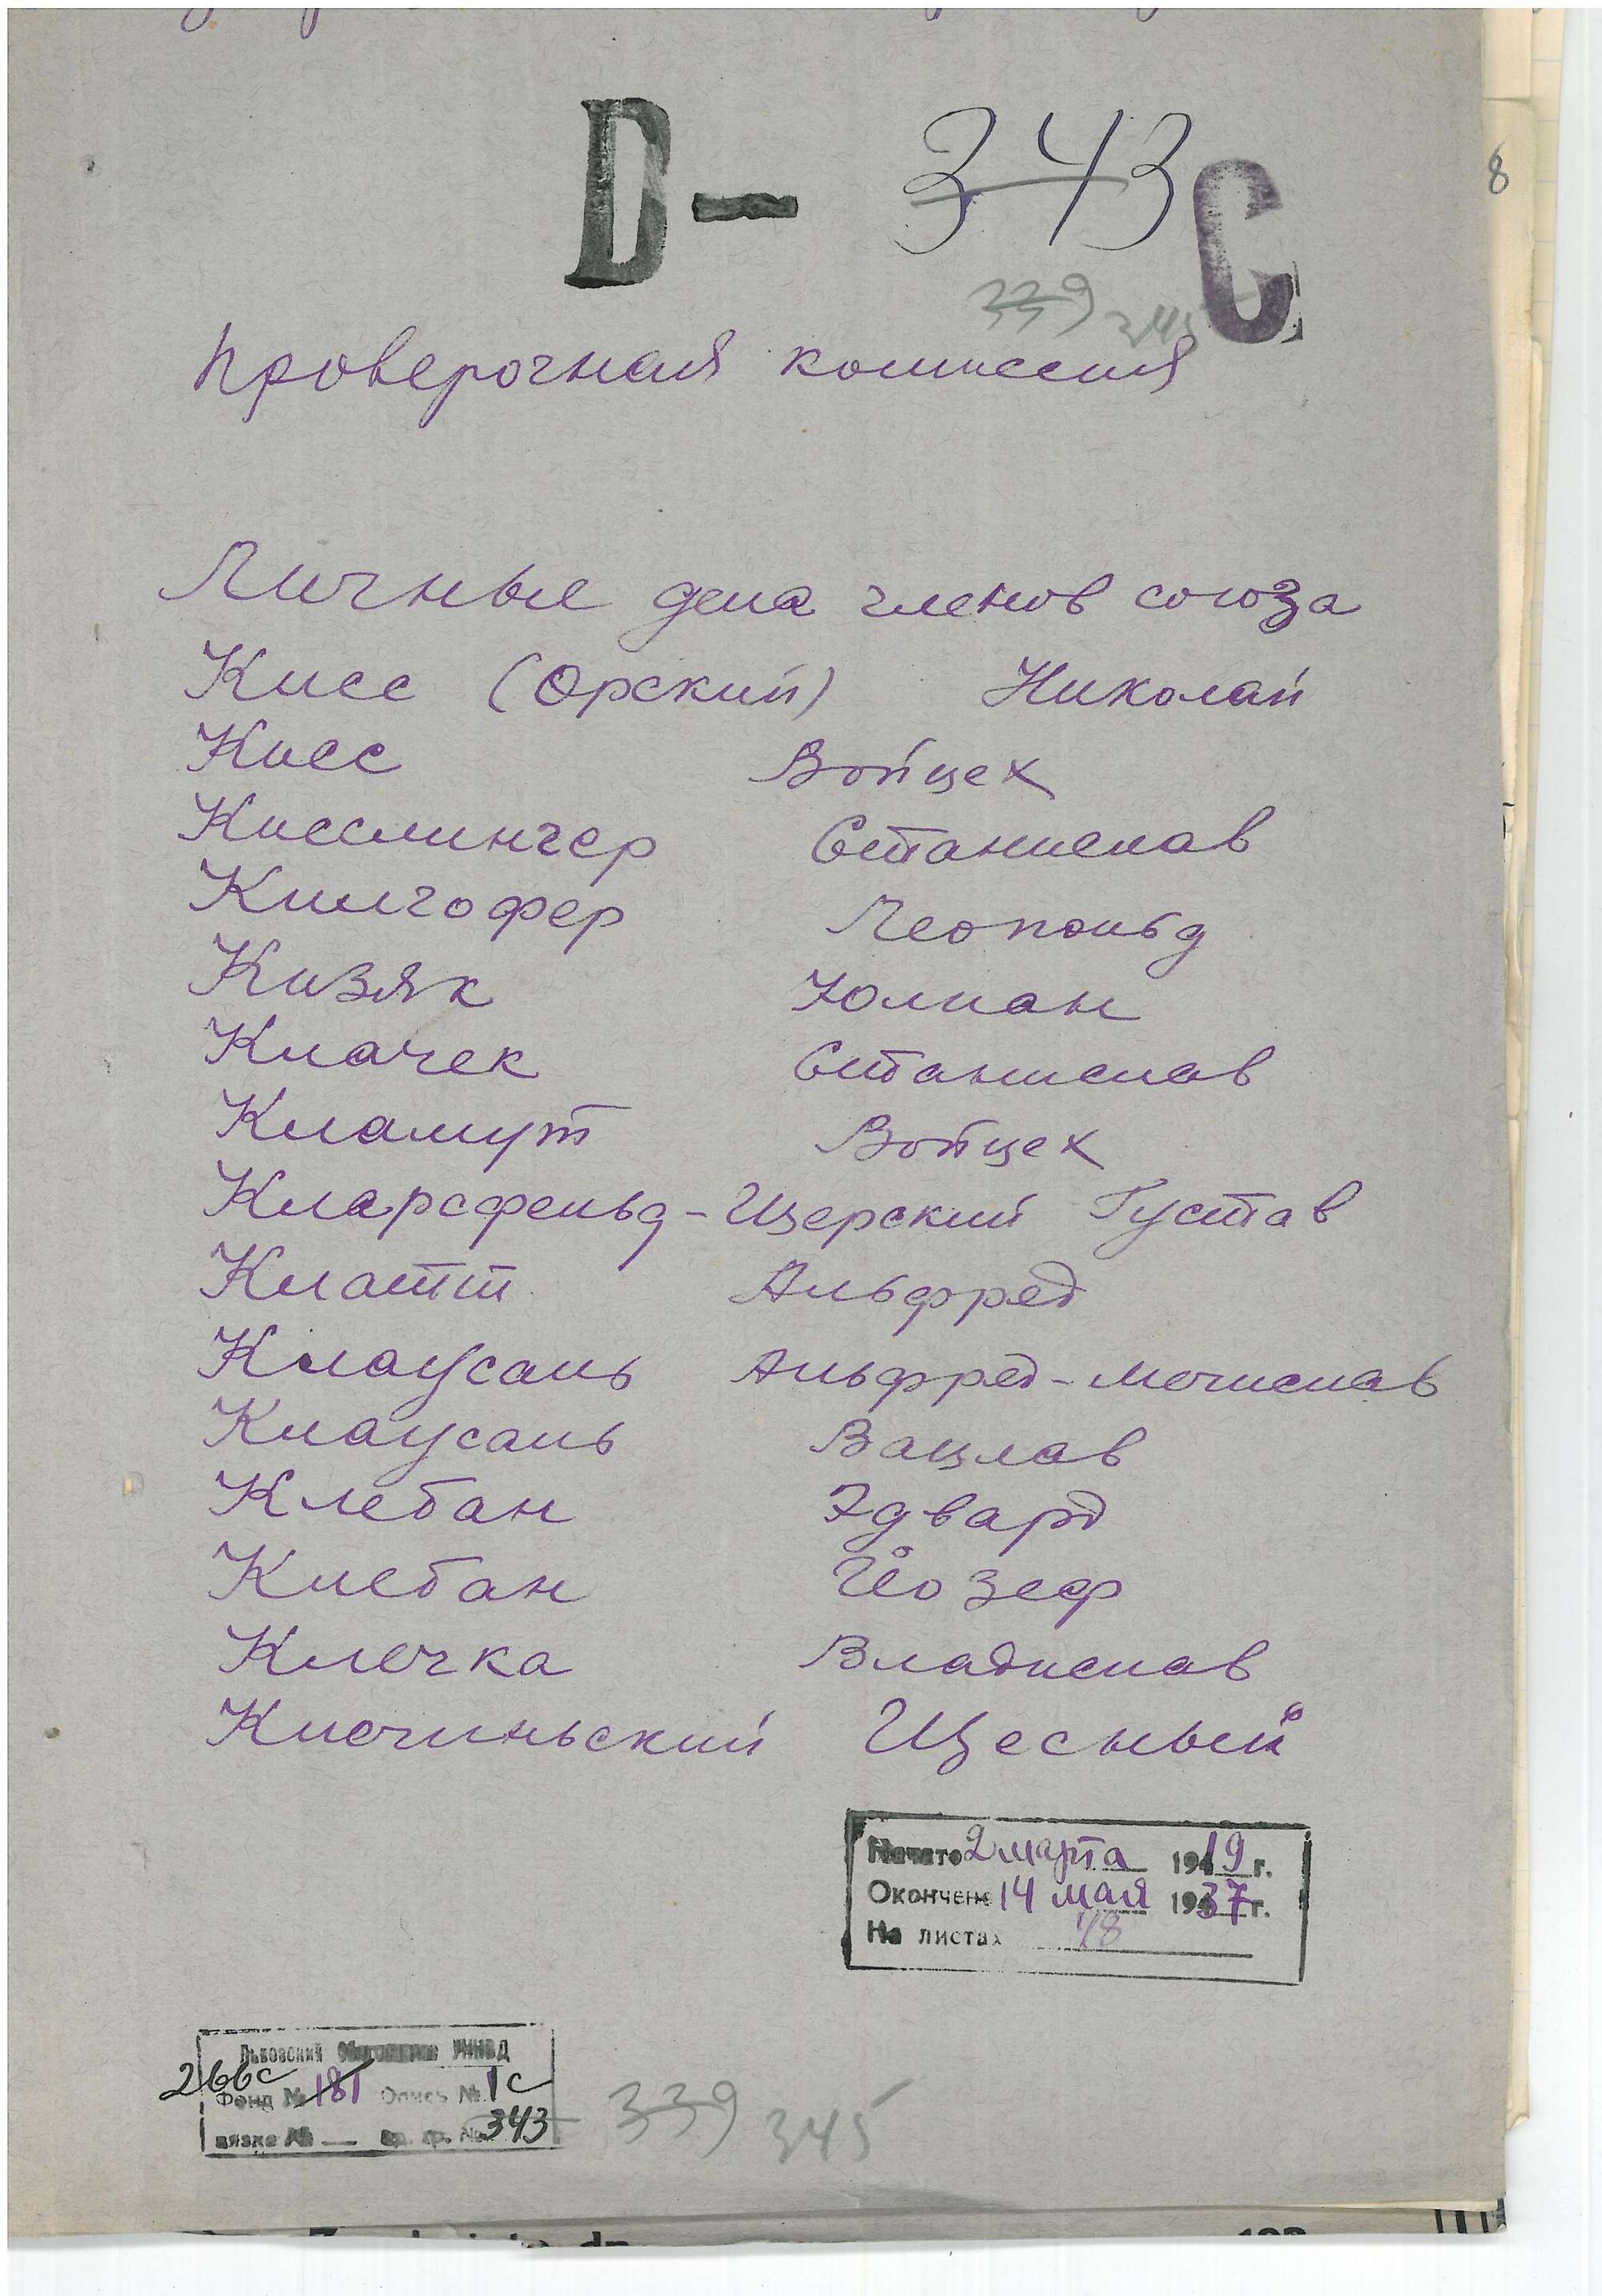 D-
343
C
8
339 345
Проверочная комиссия
Личные дела членов союза
Кисс (Орский) Николай
Кисс Войцех
Кисслингер Станислав
Килгофер Леопольд
Кизяк Юлиан
Клачек Станислав
Кламут Войцех
Кларсфельд-Щерский Густав
Клатт Альфред
Клаусаль Альфред-Мечислав
Клаусаль Вацлав
Клебан Эдвард
Клебан Йозеф
Клечка Владислав
Клечиньский Щесный
Начато 2 марта 1919 г.
Окончено 14 мая 1937 г.
На листах 48
Львовский УНКВД
266с
Фонд № 181 Опись № 1с
вязке № — ед. хр. № 343
339 345